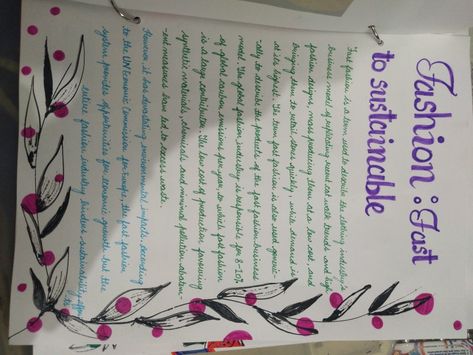 Fashion : Fast
to sustainable
Fast fashion is a term used to describe the clothing industry's
business model of replicating recent cat walk trends and high
fashion designs, mass producing them at a low cost, and
bringing them to retail stores quickly, while demand is
at its highest. The term fast fashion is also used generic-
ally to describe the products of the fast fashion business
model. The global fashion industry is responsible for 8-10%
of global carbon emissions per year, to which fast fashion
is a large contributor. The low cost of production favouring
synthetic materials, chemicals and minimal pollution abatem-
measures have led to excess waste.
However, it has devastating environmental impacts, according
to the UN Economic Commission for Europe, the fast fashion
system provides opportunities for economic growth but the
entire fashion industry hinders sustainability